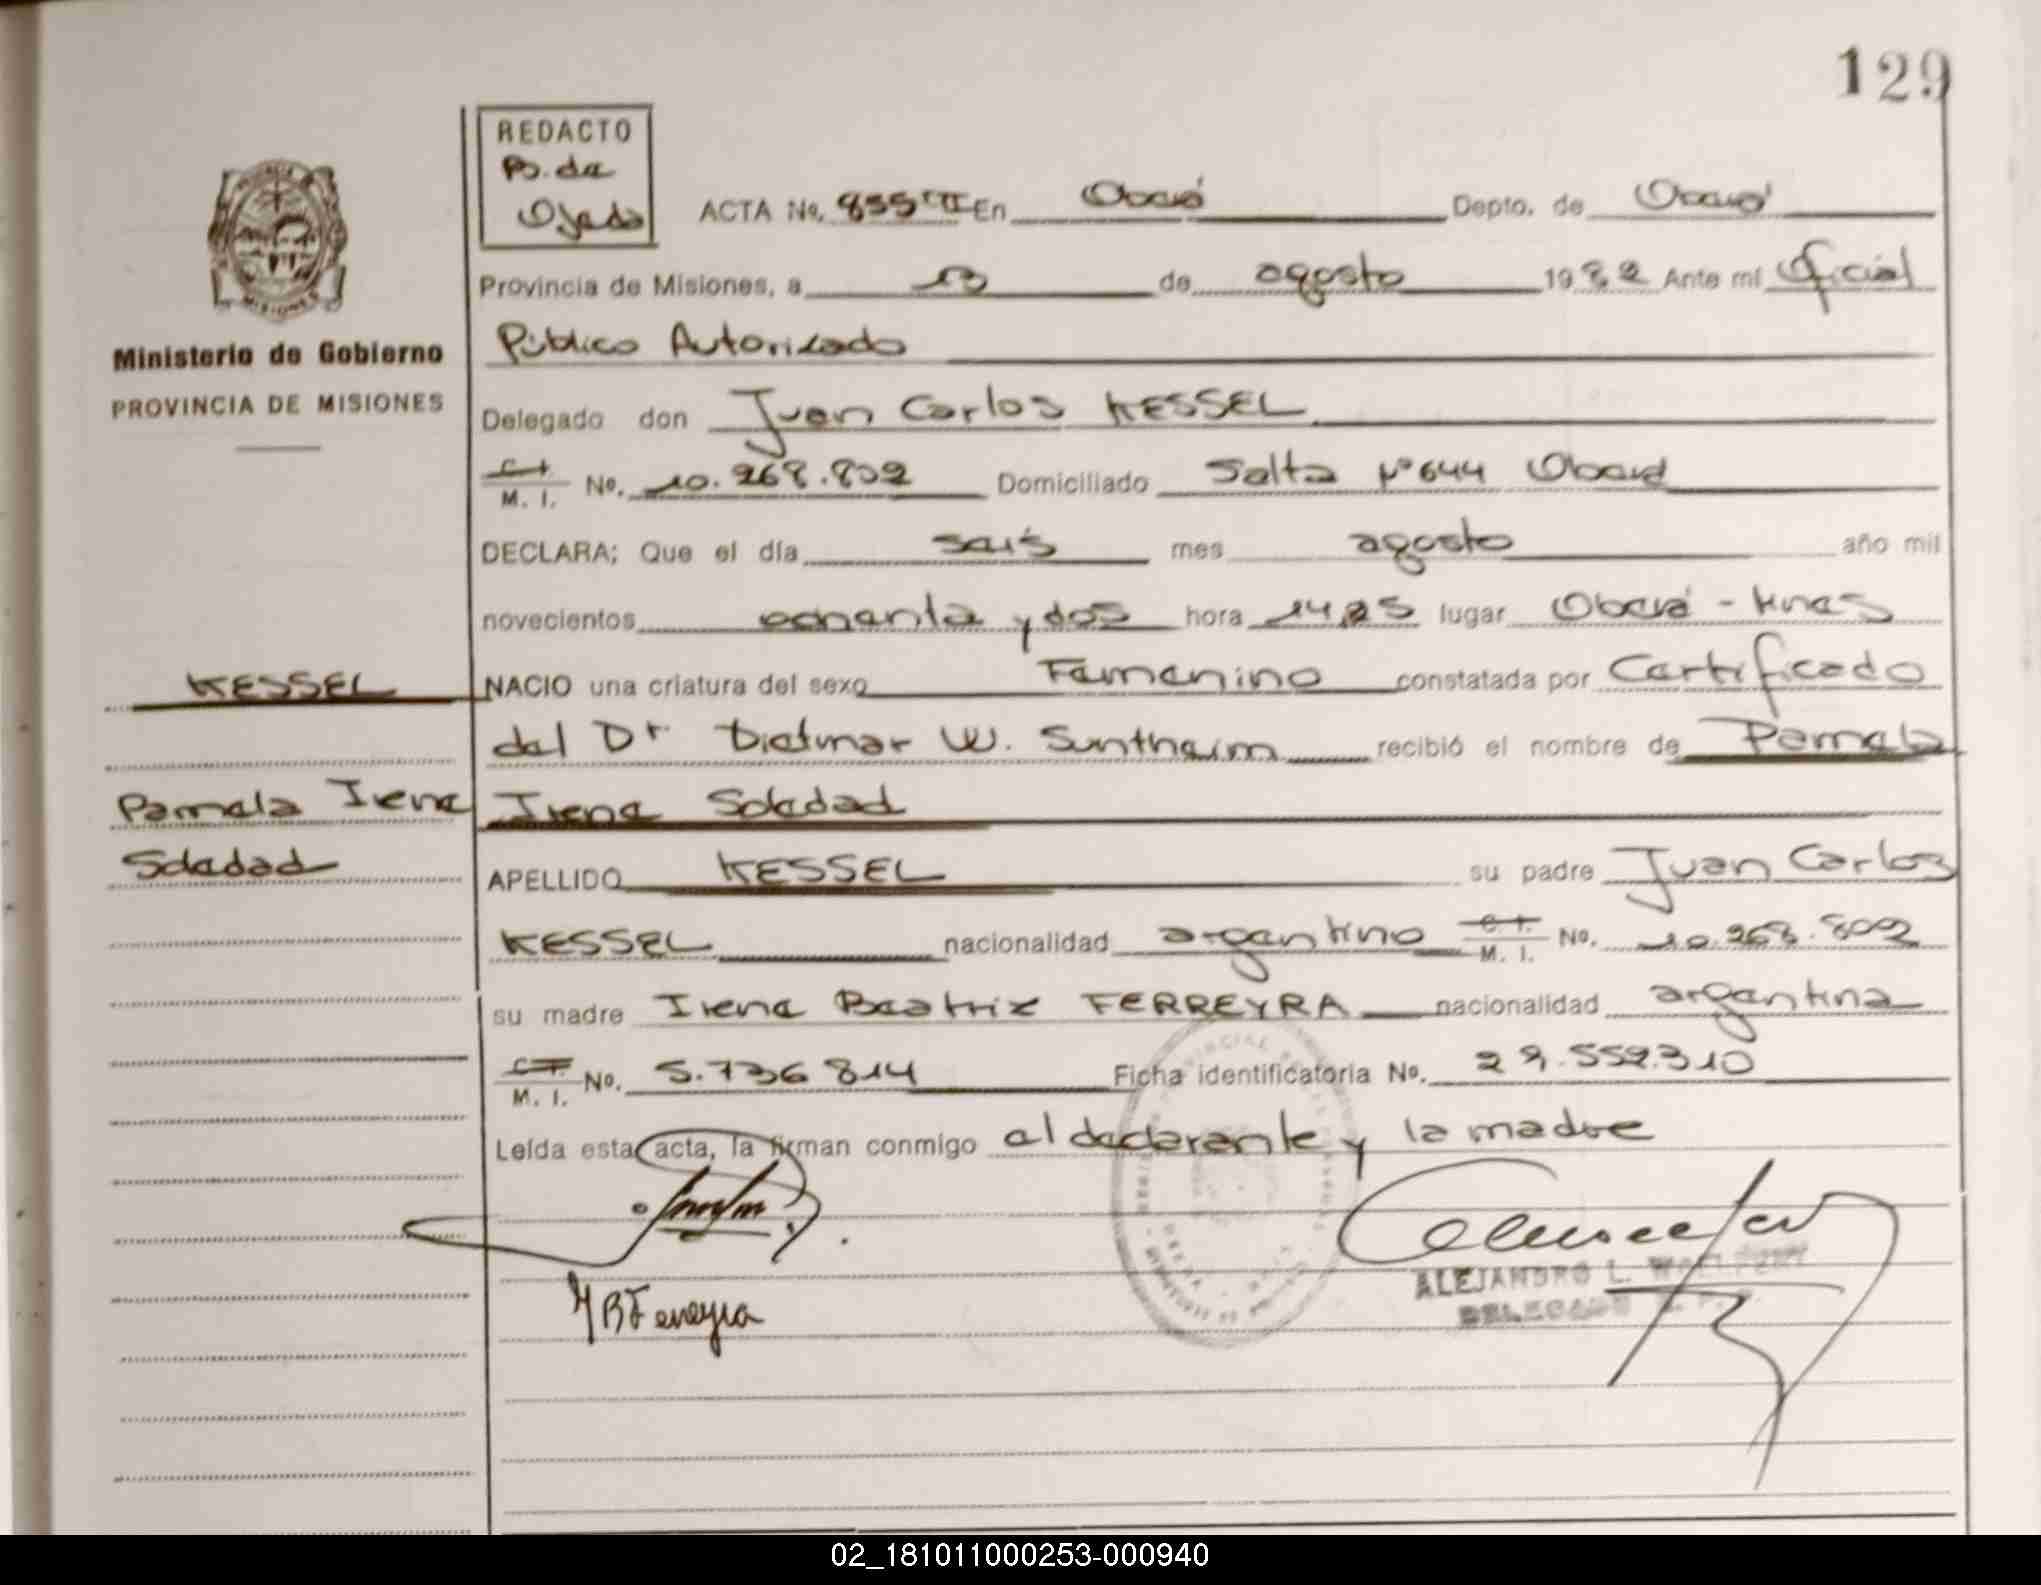 129
REDACTO
B. de
Ojeda
ACTA No. 855 En Oberá Depto. de Oberá
Provincia de Misiones, a 13 de agosto 1982 Ante mí Oficial
Ministerio de Gobierno
PROVINCIA DE MISIONES
Público Autorizado
Delegado don Juan Carlos KESSEL
C.I. M. I. No. 10.268.802 Domiciliado Salta Nº 644 Oberá
DECLARA; Que el día seis mes agosto año mil
novecientos ochenta y dos hora 14,25 lugar Oberá - Mnes
KESSEL
NACIO una criatura del sexo Femenino constatada por Certificado
del Dr Dietmar W. Suntheim recibió el nombre de Pamela
Pamela Irene
Soledad
Irene Soledad
APELLIDO KESSEL su padre Juan Carlos
KESSEL nacionalidad argentino C.I. M. I. No. 10.268.802
su madre Irene Beatriz FERREYRA nacionalidad argentina
C.I. M. I. No. 5.736 814 Ficha identificatoria No. 29.552.310
Leída esta acta, la firman conmigo el declarante y la madre
ALEJANDRO L.
DELEGADO
02_181011000253-000940